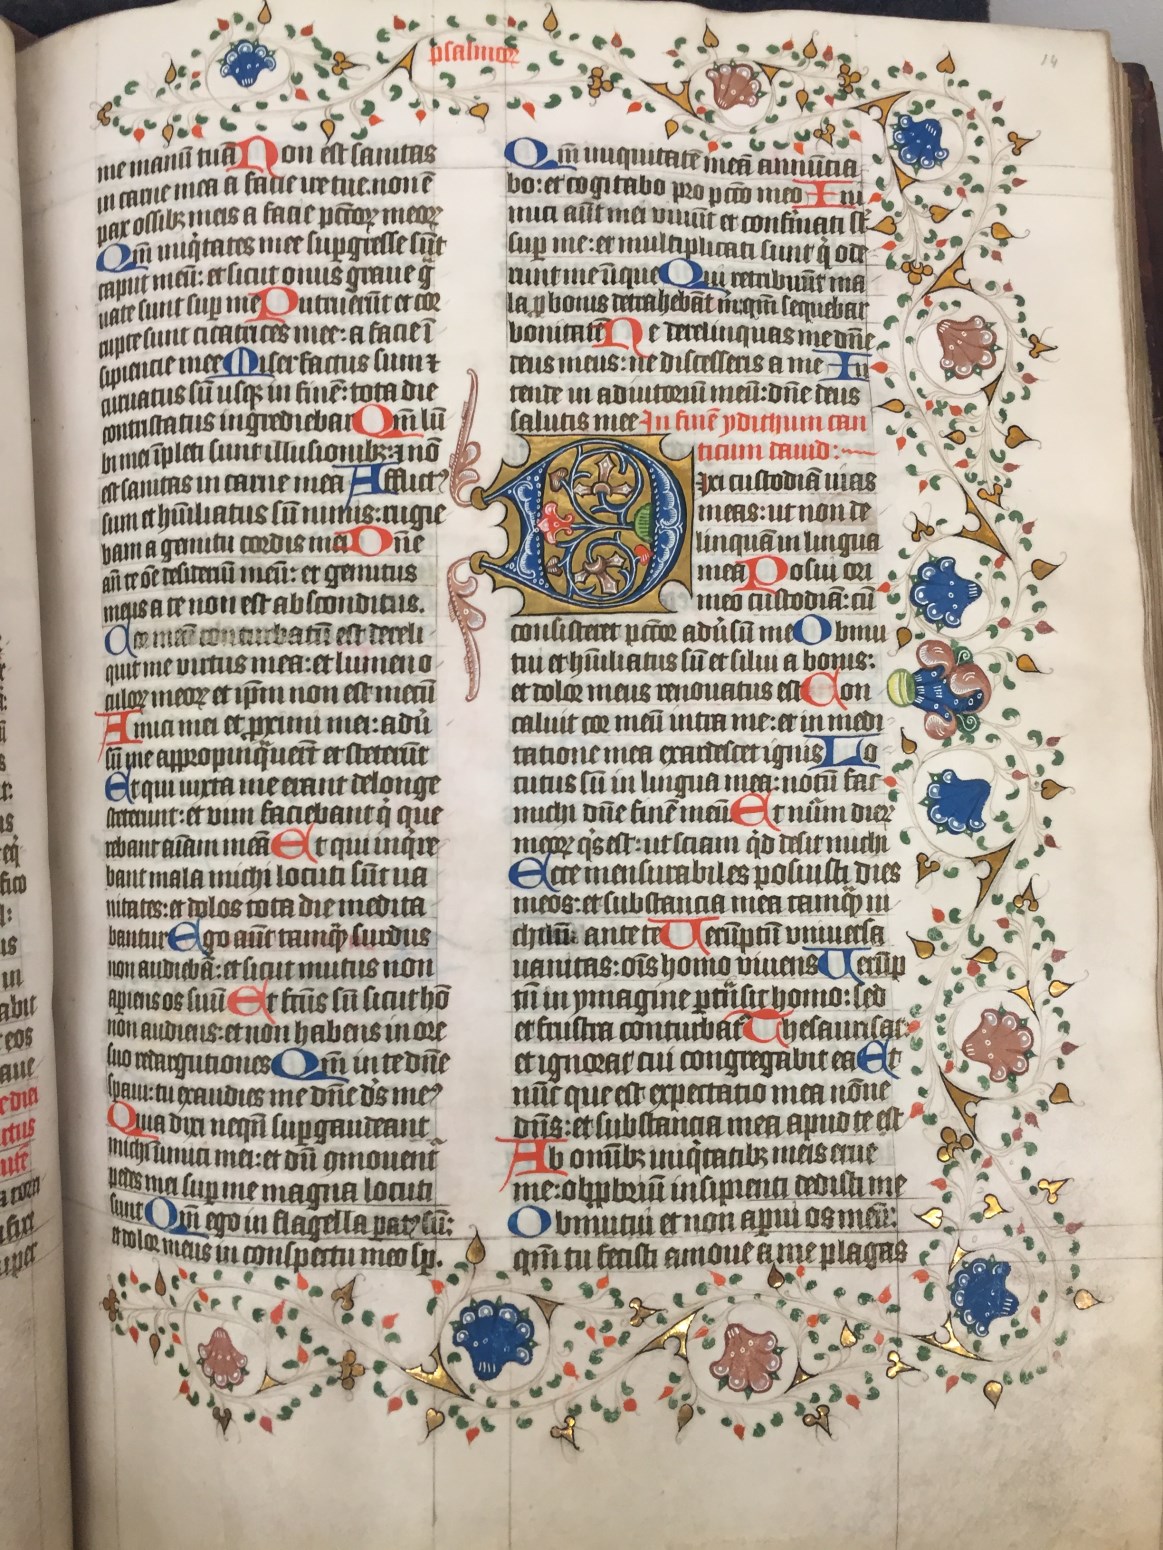 psalmor̄
14
me manū tuā Non est sanitas
in carne mea a facie ire tue: non ē
pax ossibꝫ meis a facie pctōꝝ meoꝝ
Qm̄ iniq̇tates mee sup̄gresse sūt
caput meū: et sicut onus graue g̃
uate sunt sup me Putruerūt et cor
rupte sunt cicatrices mee: a facie ī
sipiencie mee Miser factus sum ⁊
curuatus sū usqꝫ in finē: tota die
contristatus ingrediebar Qm̄ lū
bi mei īpleti sunt illusionibꝫ: ⁊ nō
est sanitas in carne mea Afflictꝰ
sum et hūiliatus sū nimis: rugie
bam a gemitu cordis mei Dn̄e
an̄ te om̄e desideriū meū: et gemitus
meus a te non est absconditus.
Cor meū conturbatū est dereli
quit me virtus mea: et lumen o
culoꝝ meoꝝ et ip̄m non est mecū
Amici mei et ꝓximi mei: aduer̄
sū me appropinq̄uerūt et steterūt
Et qui iuxta me erant de longe
steterunt: et vim faciebant q̇ que
rebant aīam meā Et qui inq̇re
bant mala michi locuti sūt ua
nitates: et dolos tota die medita
bantur Ego aūt tamq̄ surdus
non audiebā: et sicut mutus non
apiens os suū Et fctūs sū sicut hō
non audiens: et non habens in ore
suo redargutiones Qm̄ in te dn̄e
spaui: tu exaudies me dn̄e dš meꝰ
Quia dixi nequn̄ sup̄gaudeant
michi inimici mei: et dū cōmouent̄
pedes mei sup me magna locuti
sunt Qm̄ ego in flagella patꝰ sū:
et dolor meus in conspectu meo sp̄.
Qm̄ iniquitatē meā annūcia
bo: et cogitabo pro pctō meo Ini
mici aūt mei viuūt et confirmati sr̄
sup me: et multiplicati sunt q̇ ode
runt me iniq̄ue Qui retribuūt ma
la ꝓ bonis detrahebāt m̄: qm̄ sequebar
bonitatē Ne derelinquas me dn̄e
deus meus: ne discesseris a me In
tende in adiutoriū meū: dn̄e deus
salutis mee In finē ydithum can
ticum dauid:
Dixi custodiā uias
meas: ut non de
linquā in lingua
mea Posui ori
meo custodiā: cū
consisteret pctōr adūsū me Obmu
tui et hūiliatus sū et silui a bonis:
et dolor meus renouatus est Con
caluit cor meū intra me: et in medi
tatione mea exardescet ignis Lo
cutus sū in lingua mea: notū fac
michi dn̄e finē meū Et nūm dieꝝ
meoꝝ q̇s est: ut sciam q̇d desit michi
Ecce mensurabiles posuisti dies
meos: et substancia mea tamq̄ ni
chilū ante te Verūptn̄ vniuersa
uanitas: oīs homo viuens Verūp
tn̄ in ymagine ptrāsit homo: sed
et frustra conturbat̄ Thesaurisat
et ignorat cui congregabit ea Et
nūc que est expectatio mea nōne
dn̄s: et substancia mea apud te est
Ab omībꝫ iniq̇tatibꝫ meis erue
me: obꝓbriū insipienti dedisti me
Obmutui et non aperui os meū:
qm̄ tu fecisti amoue a me plagas